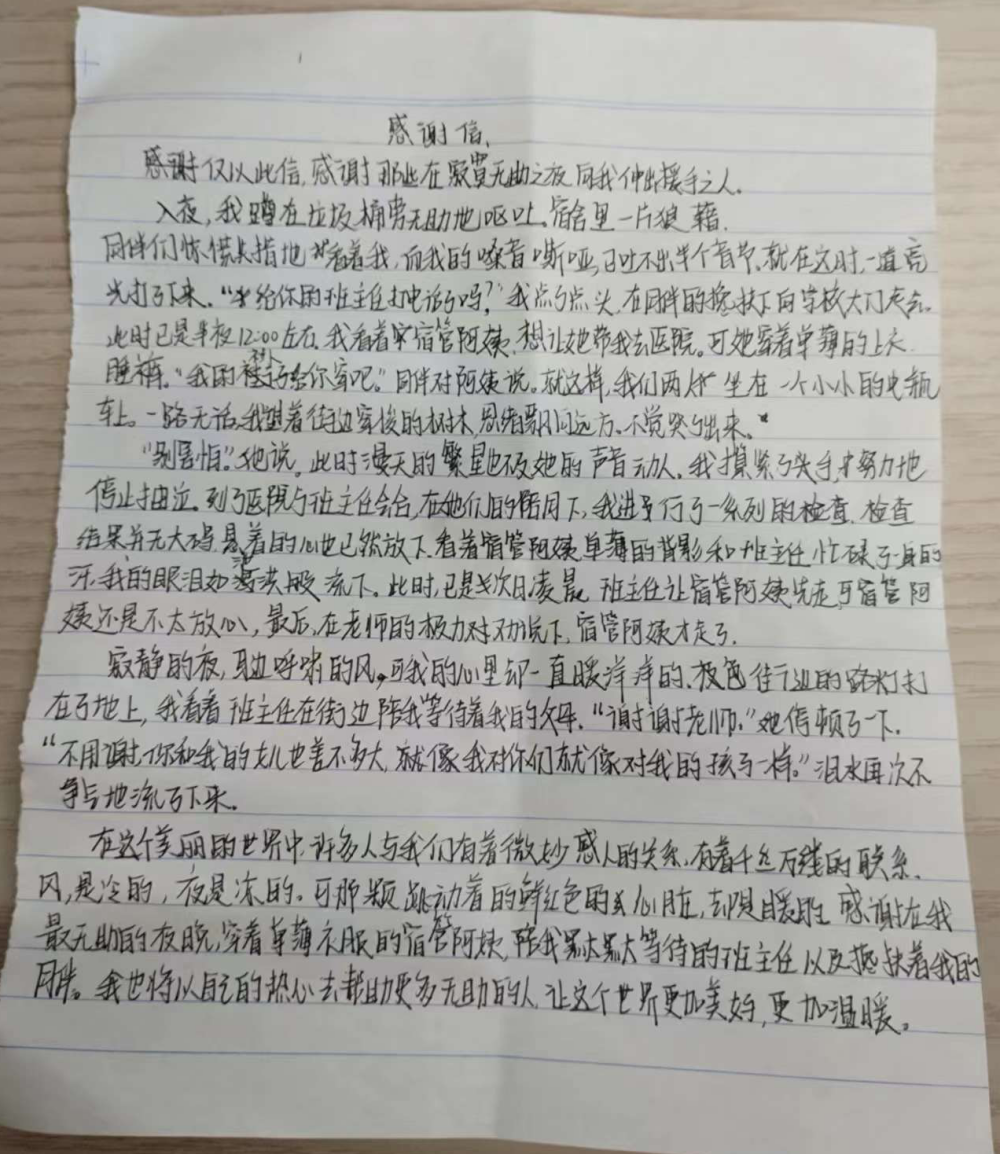 感谢信
感谢仅以此信,感谢那些在寂寞无助之夜向我伸出援手之人。
入夜,我蹲在垃圾桶旁无助地呕吐。宿舍里一片狼藉.
同伴们惊慌失措地看着我,而我的嗓音嘶哑,已吐不出半个音节,就在这时,一道亮
光打了下来。“给你的班主任打电话了吗?”我点了点头,在同伴的搀扶下向学校大门走去。
此时已是半夜12:00左右,我看着宿管阿姨,想让她带我去医院。可她穿着单薄的上衣
睡裤。“我的裤子给你穿吧。”同伴对阿姨说。就这样,我们两人坐在一个小小的电瓶
车上。一路无话,我望着街边穿梭的树木,思绪飘向远方。不觉哭了出来。
“别害怕。”她说,此时漫天的繁星也不及她的声音动人。我攥紧了头手,努力地
停止抽泣。到了医院与班主任会合,在她们的陪同下,我进行了一系列的检查,检查
结果并无大碍,悬着的心也已然放下,看着宿管阿姨单薄的背影和班主任忙碌了一身的
汗,我的眼泪如洪般流下。此时,已是次日凌晨,班主任让宿管阿姨先走,可宿管阿
姨还是不太放心,最后,在老师的极力劝说下,宿管阿姨才走了.
寂静的夜,耳边呼啸的风,可我的心里却一直暖洋洋的,夜色街边的路灯打
在了地上,我看着班主任在街边陪我等待着我的父母。“谢谢老师。”她停顿了一下。
“不用谢,你和我的女儿也差不多大,就像我对你们就像对我的孩子一样。”泪水再次不
争气地流了下来。
在这个美丽的世界中,许多人与我们有着微妙感人的关系,有着千丝万缕的联系.
风,是冷的,夜是冻的。可那颗跳动着的鲜红色的心脏,却是暖的。感谢在我
最无助的夜晚,穿着单薄衣服的宿管阿姨,陪我默默等待的班主任以及搀扶着我的
同伴。我也将以自己的热心去帮助更多无助的人,让这个世界更加美好,更加温暖。